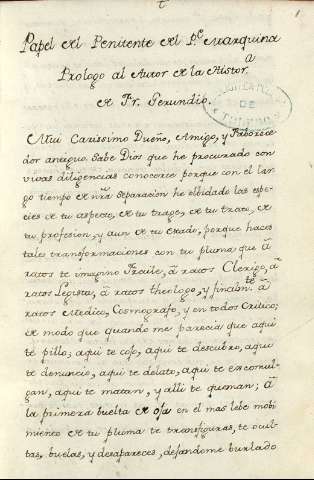 1
Papel del Penitente del P.e Marquina
Prologo al Autor de la Histor.a
de Fr. Gerundio.
Mui Carissimo Dueño, Amigo, y Faborece
dor antiguo. Sabe Dios que he procurado con
vivas diligencias conocerte porque con el lar
go tiempo de nra separacion he olbidado las espe
cies de tu aspecto, de tu trage, de tu trato, de
tu profesion, y aun de tu estado, porque haces
tales transformaciones con tu pluma que â
ratos te imagino Fraile, â ratos Clerigo, â
ratos Legista, â ratos theologo, y finalmte â
ratos Medico, Cosmografo, y en todos Critico;
de modo que quando me parecia que aqui
te pillo, aqui te cojo, aqui te descubro, aqui
te denuncio, aqui te delato, aqui te excomul
gan, aqui te matan, y alli te queman; â
la primera buelta de oja en el mas lebe mobi
miento de tu pluma te transfiguras, te ocul
tas, buelas, y desapareces, dejandome burlado